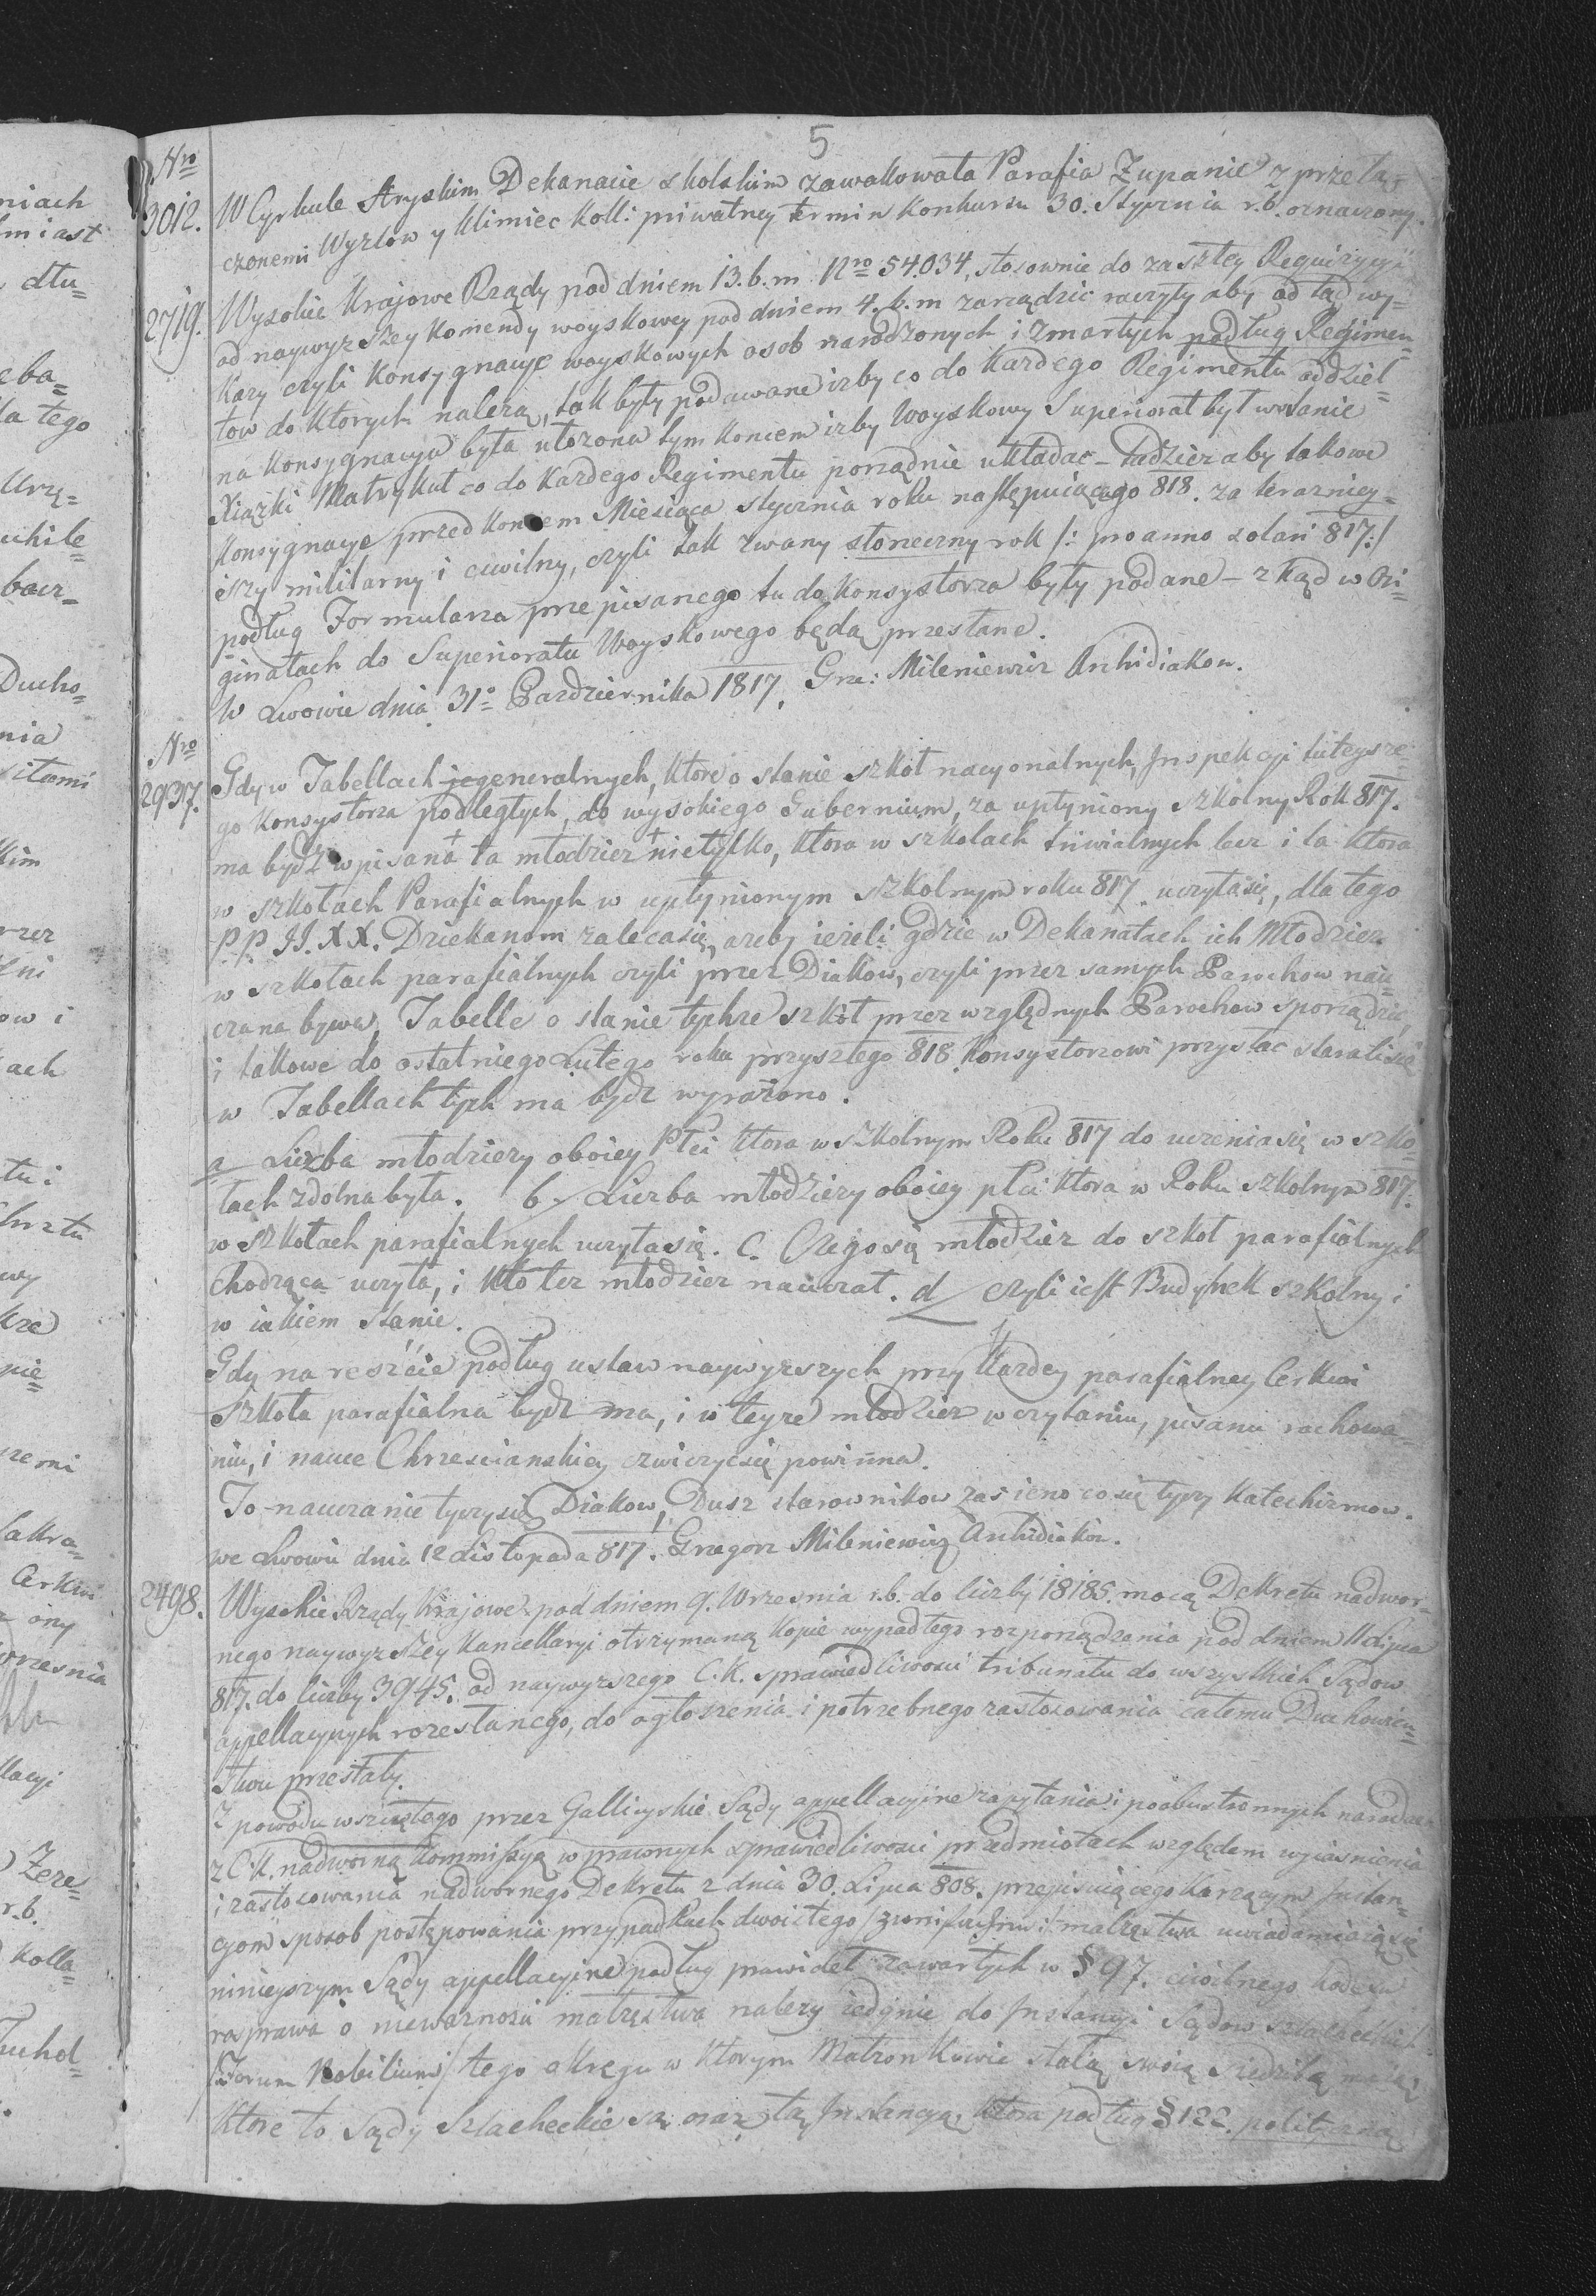 5
Nro
3012. W Cyrkule Stryskim Dekanacie skolskim zawakowała Parafia Żupanie z przełą-
czonemi Wyzłow y Klimiec Koll: priwatney termin Konkursu 30. Stycznia r.b. oznaczony.
2719. Wysokie Krajowe Rządy pod dniem 13. b. m Nro 54.034, stosownie do zaszłey Requizycyi
od naywyzszey Komendy woyskowey pod dniem 4. b. m zarządzic raczyły aby od tąd wy-
kazy czyli Konsygnacye woyskowych osob narodzonych i zmarłych podług Regimen-
tow do Ktorych należą, tak były podawane izby co do Kazdego Regimentu oddziel-
na Konsygnacya była ułozona tym Koncem izby Woyskowy Superiorat był wstanie
Xiązki Matrykuł co do Kazdego Regimentu porządnie układac – tudziez aby takowe
Konsygnacye przed Koncem Miesiąca stycznia roku następuiącego 818. za terazniey-
szy militarny i cuwilny, czyli tak zwany słoneczny rok /: pro anno solari 817:/
podług Formularza przepisanego tu do Konsystorza były podane – z kąd w Ori-
ginałach do Superioratu Woyskowego będą przesłane.
W Lwowie dnia 31o Pazdziernika 1817. Grze: Mileniewicz Archidiakon.
Nro
2937. Gdy w Tabellach je generalnych, Ktore o stanie szkół nacyonalnych, Inspekcyi tuteysze-
go Konsystorza podległych, do wysokiego Gubernium, za upłyniony szkolny Rok 817.
ma bydź wpisana + ta młodziez + nietylko, Ktora w szkołach triwialnych lecz i ta Ktora
w szkołach Parafialnych w upłynionym szkolnym roku 817. uczyłasię, dla tego
P.P. JJ. XX. Dziekanom zalecasię, azeby iezeli gdzie w Dekanatach ich Młodziez
w szkołach parafialnych czyli przez Diakow, czyli przez samych Parochow nau-
czana bywa, Tabelle o stanie tychze szkół przez względnych Parochow sporządzic,
i takowe do ostatniego Lutego roku przyszłego 818. Konsystorzowi przysłac staralisię
w Tabellach tych ma bydz wyrażono.
a Liczba młodziezy oboiey Płci Ktora w szkolnym Roku 817 do uczenia się w szko-
łach zdolna była. b Liczba młodziezy oboiey płci Ktora w Roku szkolnym 817.
w szkołach parafialnych uczyłasię. c. Czegosię młodziez do szkoł parafialnych
chodząca uczyła, i Kto tez młodziez nauczał. d czyli iest Budynek szkolny i
w iakiem stanie.
Gdy na resźcie podług ustaw naywyzszych przy Kazdey parafialney Cerkwi
Szkoła parafialna bydz ma, i w teyze młodziez w czytaniu, pisaniu rachowa-
niu, i nauce Chrzescianskiey cwiczycsię powinna.
To nauczanie tyczysię Diakow, Dusz starownikow zas ieno co się tyczy Katechizmow.
we Lwowie dnia 12 Listopada 817. Grzegorz Mileniewicz Archidiakon.
2498. Wysokie Rządy Krajowe pod dniem 9. Wrzesnia r.b. do liczby 18185. mocą Dekretu nadwor-
nego naywyzszey Kancellaryi otrzymaną Kopie wypadłego rozporządzenia pod dniem 11 Lipca
817. do liczby 3945. od naywyzszego C.K. sprawiedliwosci tribunału do wszystkich Sądow
appellacyinych rozesłanego, do ogłoszenia i potrzebnego zastosowania całemu Duchowień-
stwu przesłały.
Z powodu wszczętego przez Gallicyskie Sądy appellacyine zapytania i poobustronnych naradach
z C.K. nadworną Kommissyą w prawnych sprawiedliwosci przedmiotach względem wyiasnienia
i zastosowania nadwornego Dekretu z dnia 30. Lipca 808. przepisuiącego Karzącym Instan-
cyom sposob postępowania przypadkach dwoistego małzęstwa uwiadamiaią się
ninieyszym Sądy appellacyine podług prawideł zawartych w § 97. ciwilnego kodexu
rosprawa o niewaznosci małzęstwa nalezy iedynie do Instancyi Sądow szlacheckich
/:Forum Nobilium/ tego okręgu w Ktorym Małzonkowie stałą swoią siedzibą maią
Ktore to Sądy Szlacheckie są oraz tą Instancyą, Ktora podług § 122. polityczną